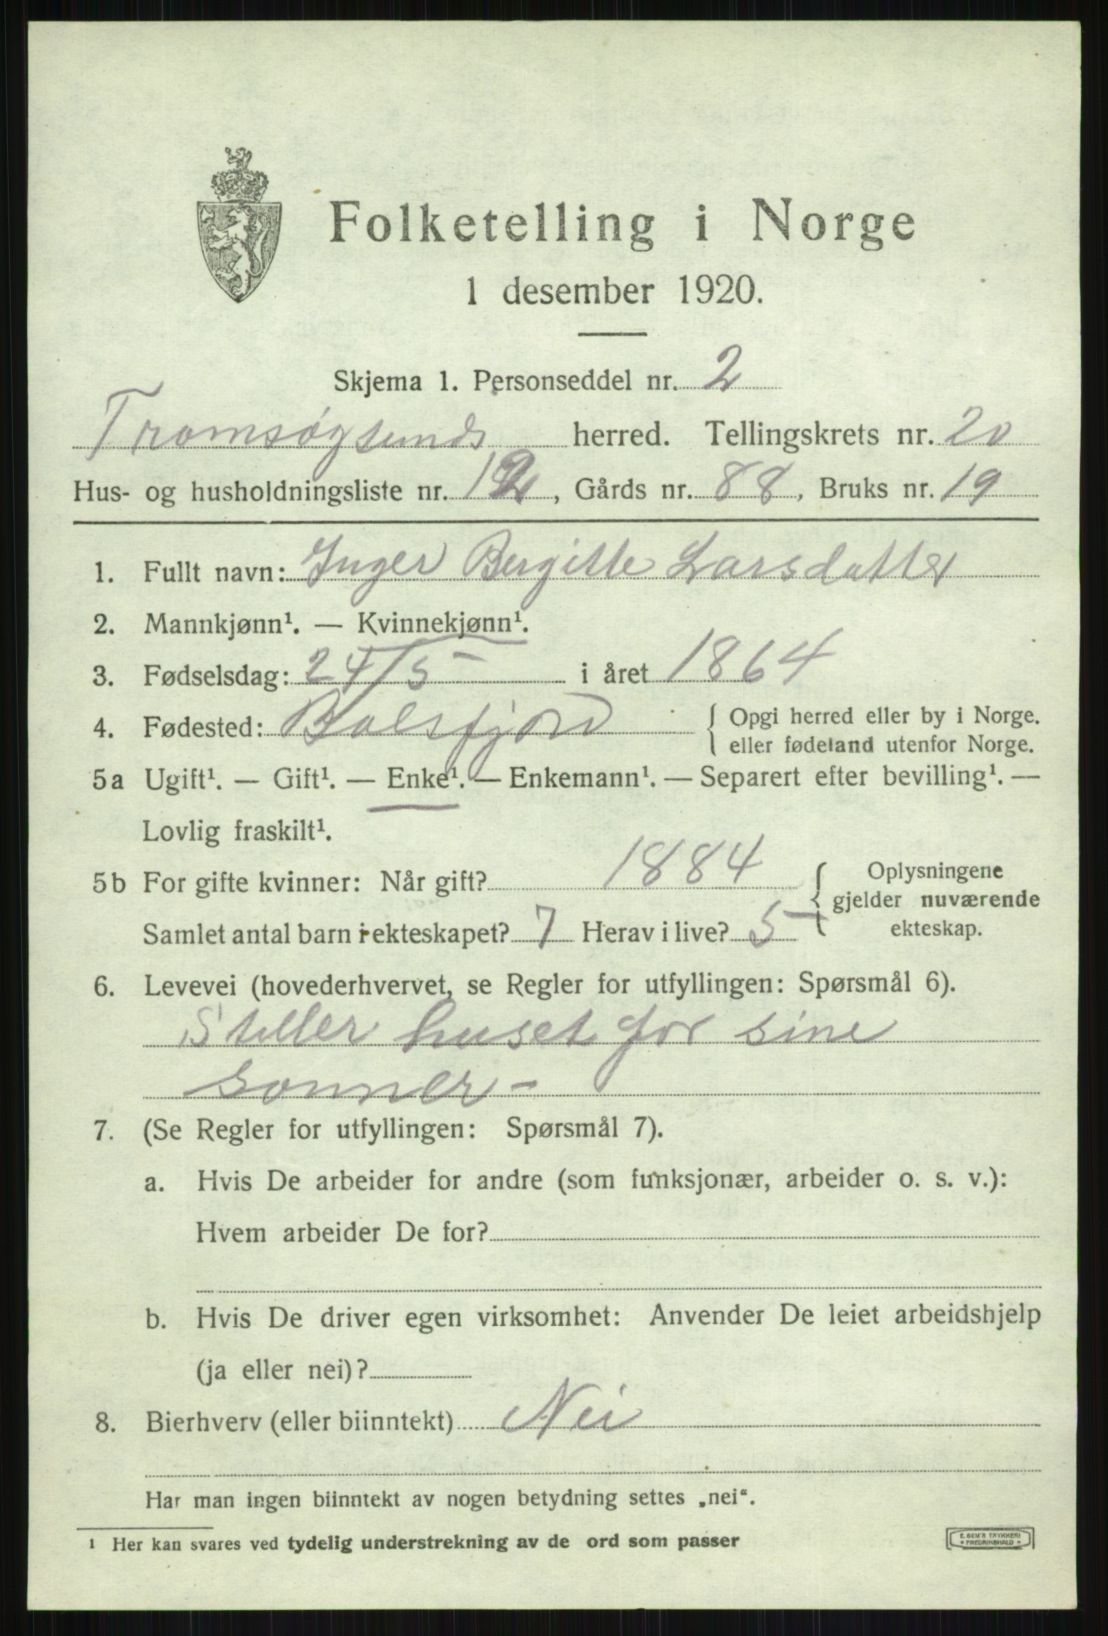 Folketelling i Norge
1 desember 1920.
Skjema 1. Personseddel nr. 2
Tromsøysunds herred. Tellingskrets nr. 20
Hus- og husholdningsliste nr. 12, Gårds nr. 88, Bruks nr. 19
1. Fullt navn: Inger Bergitte Larsdatter
2. Mannkjønn¹. — Kvinnekjønn¹.
3. Fødselsdag: 24/5 i året 1864
4. Fødested: Balsfjord { Opgi herred eller by i Norge.
eller fødeland utenfor Norge.
5a Ugift¹. — Gift¹. — Enke¹. — Enkemann¹. — Separert efter bevilling¹. —
Lovlig fraskilt¹.
5b For gifte kvinner: Når gift? 1884 { Oplysningene
gjelder nuværende
Samlet antal barn i ekteskapet? 7 Herav i live? 5 ekteskap.
6. Levevei (hovederhvervet, se Regler for utfyllingen: Spørsmål 6).
Steller huset for sine
sønner –
7. (Se Regler for utfyllingen: Spørsmål 7).
a. Hvis De arbeider for andre (som funksjonær, arbeider o. s. v.):
Hvem arbeider De for?
b. Hvis De driver egen virksomhet: Anvender De leiet arbeidshjelp
(ja eller nei)?
8. Bierhverv (eller biinntekt) Nei
Har man ingen biinntekt av nogen betydning settes „nei“.
¹ Her kan svares ved tydelig understrekning av de ord som passer
E. SEM'S TRYKKERI
FREDRIKSHALD